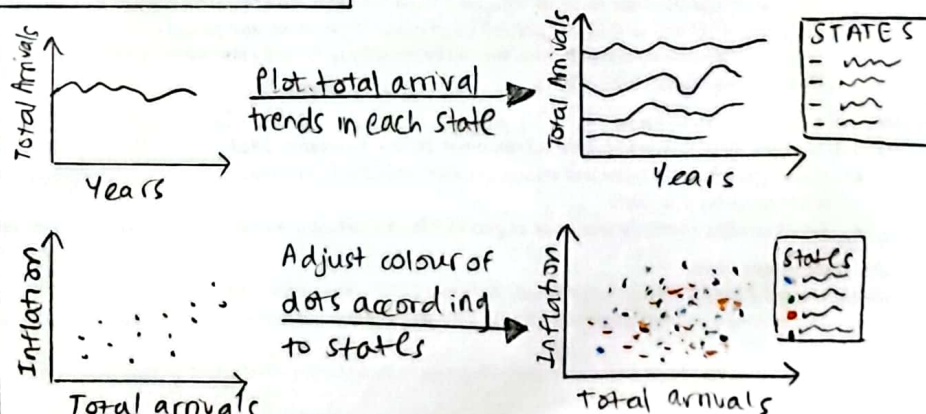 Total Arrivals
Years
Plot total arrival
trends in each state
Total Arrivals
Years
STATES
Inflation
Total arrivals
Adjust colour of
dots according
to states
Inflation
Total arrivals
States